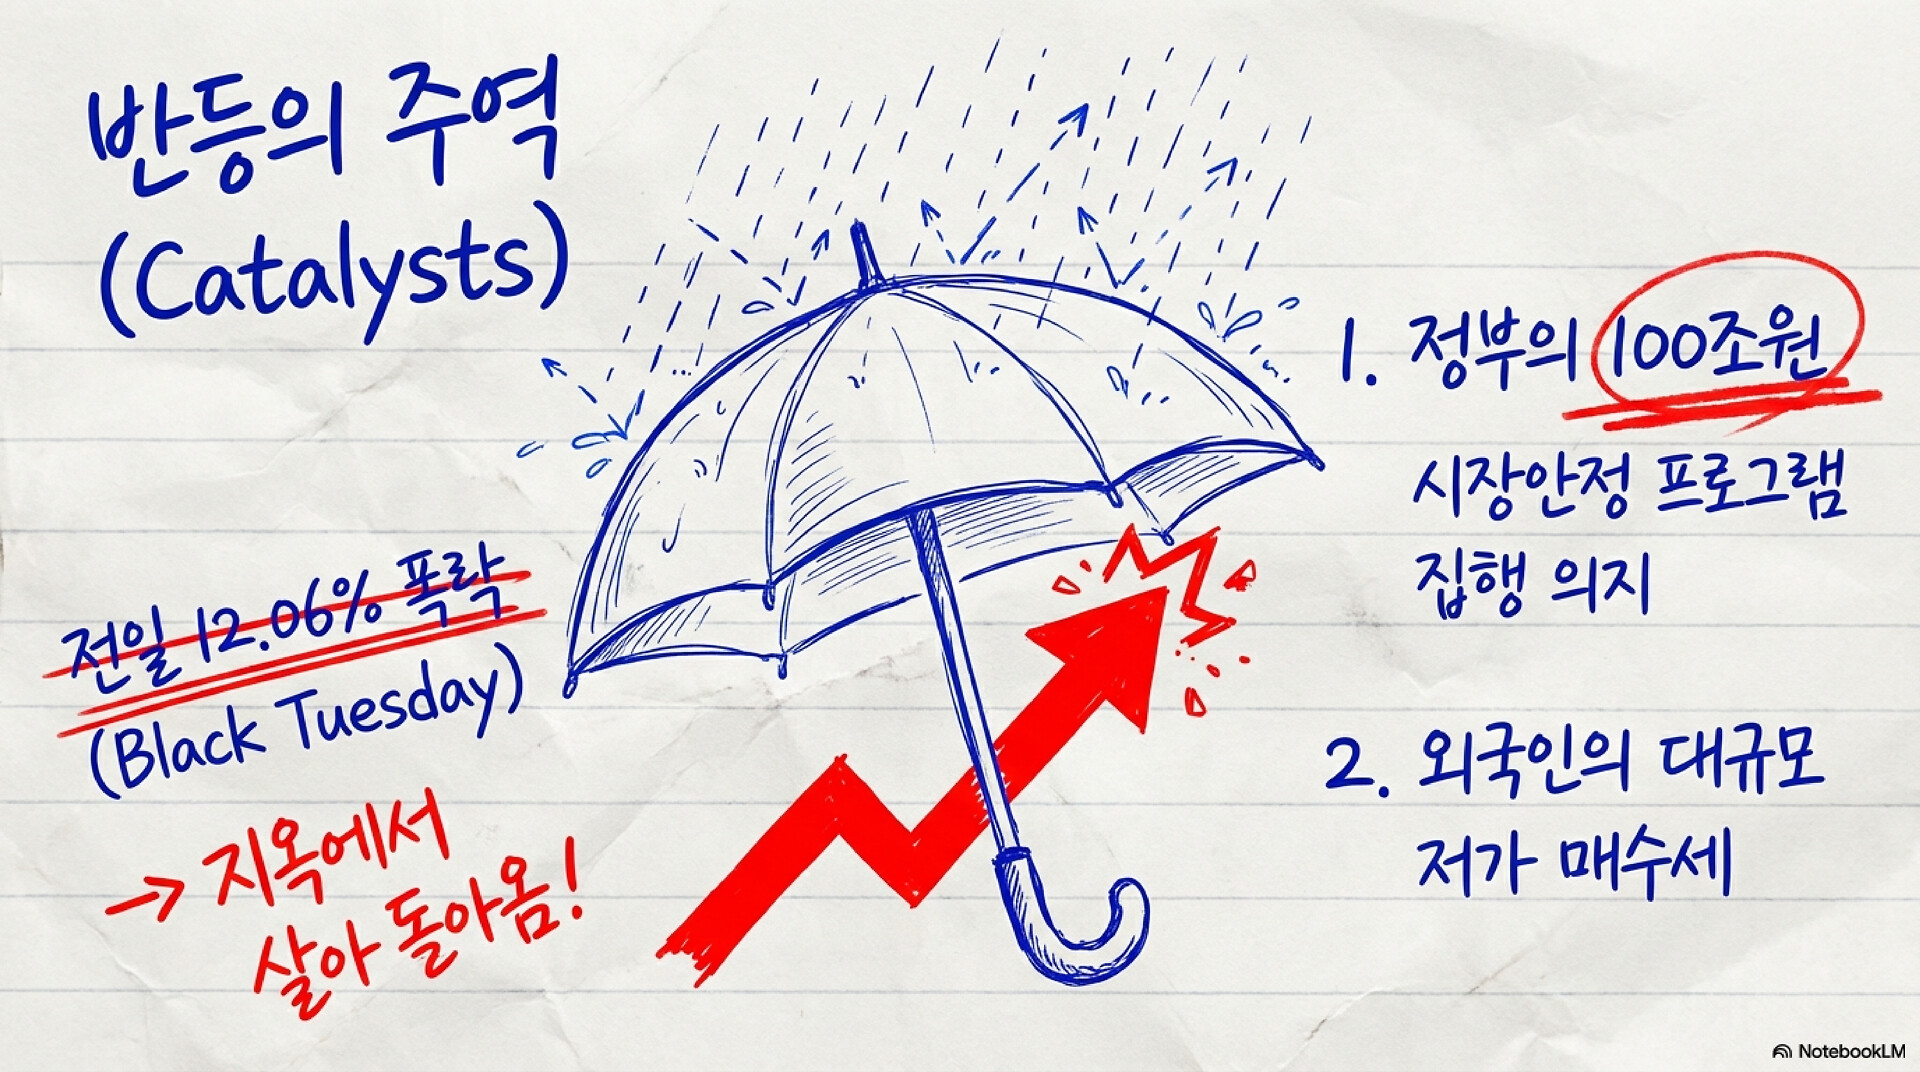 반등의 주역
(Catalysts)
전일 12.06% 폭락
(Black Tuesday)
→ 지옥에서
살아 돌아옴!
1. 정부의 100조원
시장안정 프로그램
집행 의지
2. 외국인의 대규모
저가 매수세
NotebookLM